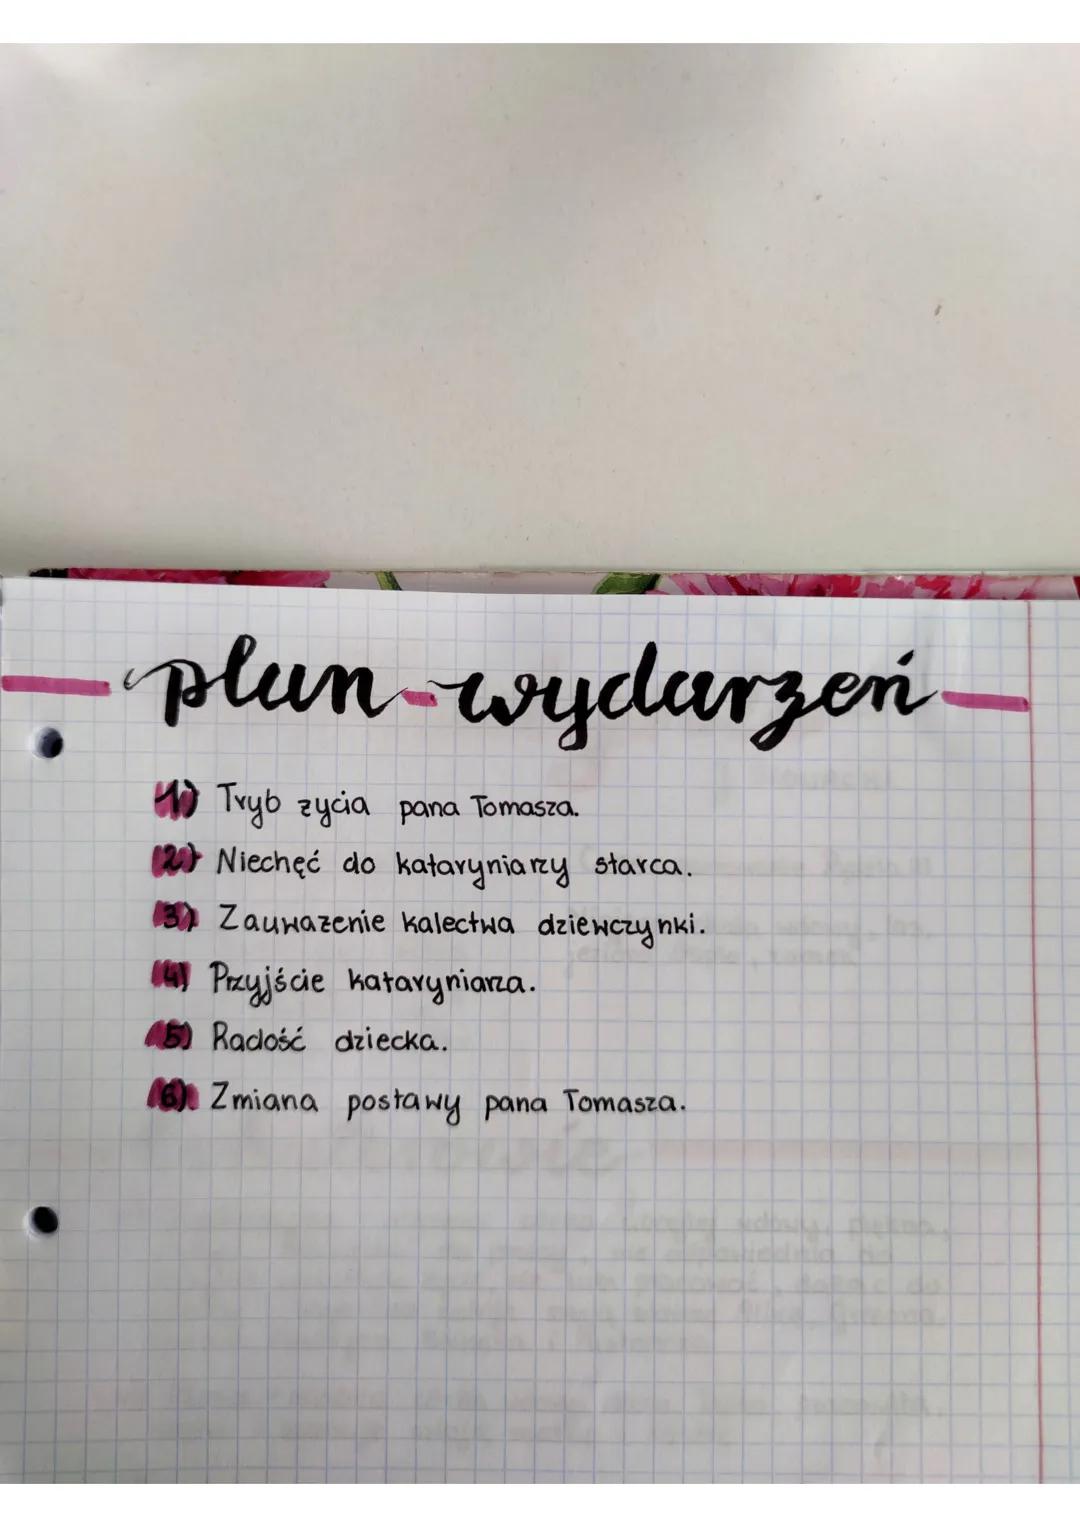 plan wydarzeń
1) Tryb życia pana Tomasza.
2) Niechęć do kataryniarzy starca.
3) Zauważenie kalectwa dziewczynki.
4) Przyjście kataryniarza.
5) Radość dziecka.
6). Zmiana postawy pana Tomasza.